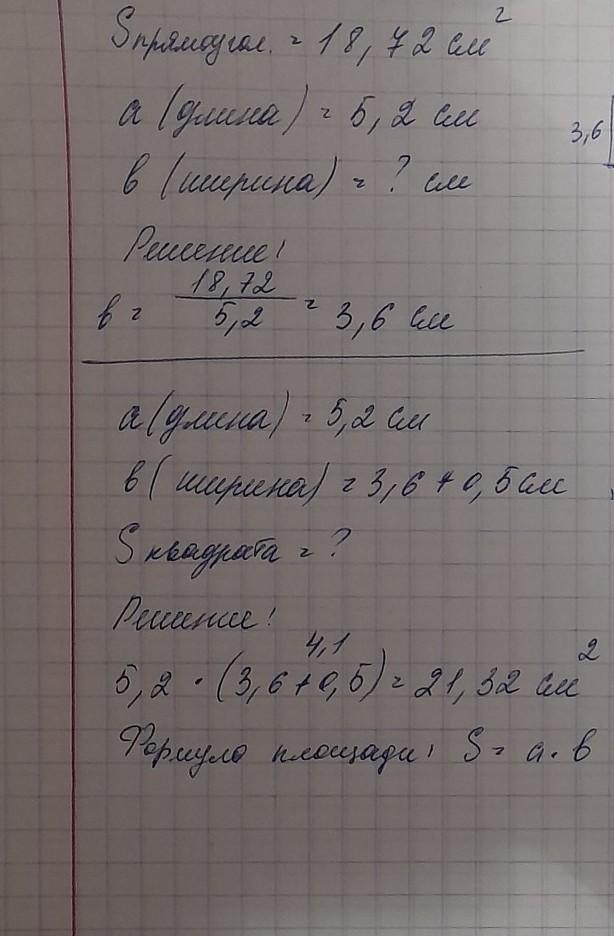 Sпрямоугол. = 18,72 см²
a (длина) = 5,2 см
3,6
в (ширина) = ? см
Решение:
в = 18,72 / 5,2 = 3,6 см
a (длина) = 5,2 см
в (ширина) = 3,6 + 0,5 см
S квадрата = ?
Решение:
4,1
5,2 · (3,6+0,5) = 21,32 см²
Формула площади: S = a · в